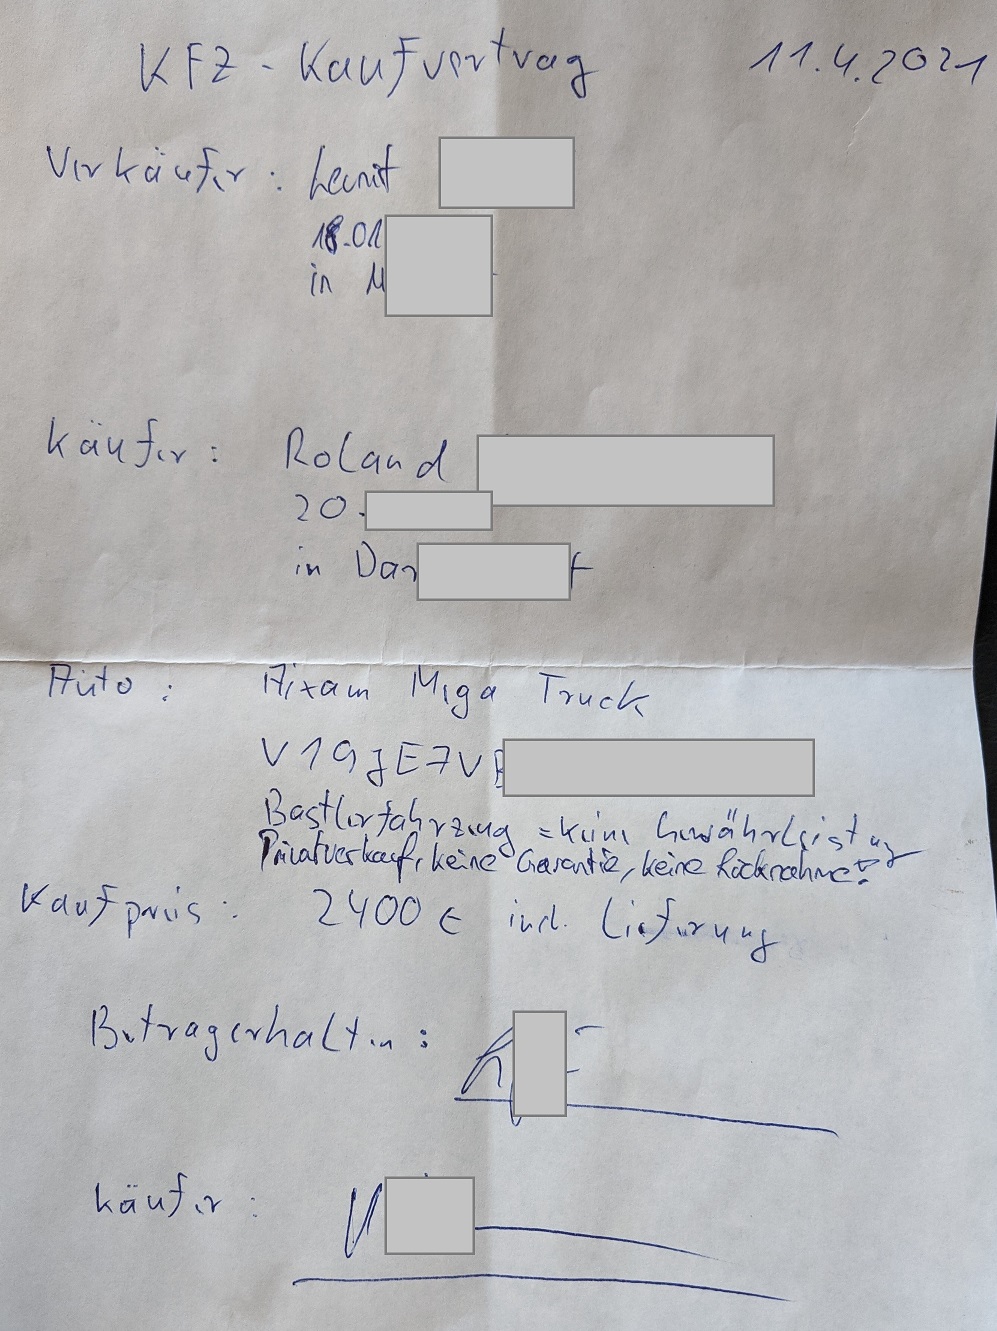 KFZ-Kaufvertrag 11.4.2021
Verkäufer:
18.01
in M
Käufer: Roland
20.
in Dar
Auto: Aixam Mega Truck
V19JE7V
Bastlerfahrzeug = keine Gewährleistung
Privatverkauf, keine Garantie, keine Rücknahme!
Kaufpreis: 2400 € incl. Lieferung
Betrag erhalten:
Käufer: